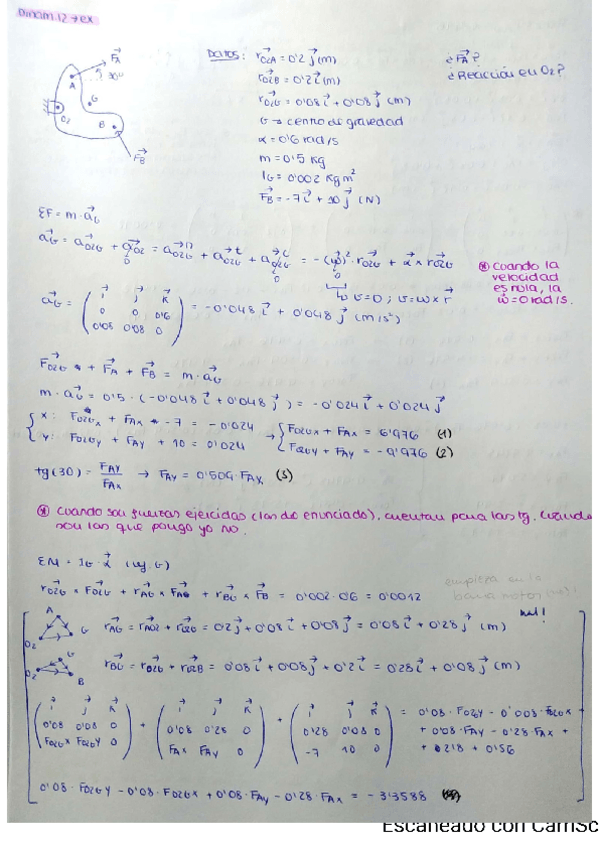 Dinam.12 → ex
Datos: r⃗O2A = 0'2 j⃗ (m)
r⃗O2B = 0'2 i⃗ (m)
r⃗O2G = 0'08 i⃗ + 0'08 j⃗ (m)
G → centro de gravedad
α = 0'6 rad/s
m = 0'5 kg
IG = 0'002 kg m²
F⃗B = -7 i⃗ + 10 j⃗ (N)
¿F⃗A?
¿Reacción en O2?
F⃗A
30º
A
G
O2
B
F⃗B
ΣF = m·a⃗G
a⃗G = a⃗O2G + a⃗O2 = a⃗ⁿO2G + a⃗ᵗO2G + a⃗ᶜO2G = -(ω⃗)²·r⃗O2G + α⃗ × r⃗O2G
0 0 0
↳ v=0; v=ω×r⃗
* cuando la
velocidad
es nula, la
ω⃗=0 rad/s.
a⃗G = ( i⃗ j⃗ k⃗
0 0 0'6
0'08 0'08 0 ) = -0'048 i⃗ + 0'048 j⃗ (m/s²)
F⃗O2G + F⃗A + F⃗B = m·a⃗G
m·a⃗G = 0'5·(-0'048 i⃗ + 0'048 j⃗) = -0'024 i⃗ + 0'024 j⃗
x: FO2Gx + FAx - 7 = -0'024 → FO2Gx + FAx = 6'976 (1)
y: FO2Gy + FAy + 10 = 0'024 FO2Gy + FAy = -9'976 (2)
tg(30) = FAy/FAx → FAy = 0'504·FAx (3)
* cuando son fuerzas ejercidas (las del enunciado), cuentan para las tg. cuando
son las que pongo yo no.
ΣM = IG·α⃗
r⃗O2G × F⃗O2G + r⃗AG × F⃗AG + r⃗BG × F⃗B = 0'002·0'6 = 0'0012
empieza en la
mal!
A
O2 G
r⃗AG = r⃗AO2 + r⃗O2G = 0'2 j⃗ + 0'08 i⃗ + 0'08 j⃗ = 0'08 i⃗ + 0'28 j⃗ (m)
G
O2 B
r⃗BG = r⃗O2G + r⃗O2B = 0'08 i⃗ + 0'08 j⃗ + 0'2 i⃗ = 0'28 i⃗ + 0'08 j⃗ (m)
( i⃗ j⃗ k⃗ ) + ( i⃗ j⃗ k⃗ ) + ( i⃗ j⃗ k⃗ ) = 0'08·FO2Gy - 0'008·FO2Gx +
0'08 0'08 0 0'08 0'28 0 0'28 0'08 0 + 0'08·FAy - 0'28·FAx +
FO2Gx FO2Gy 0 FAx FAy 0 -7 10 0 + 2'8 + 0'56
0'08·FO2Gy - 0'08·FO2Gx + 0'08·FAy - 0'28·FAx = -3'3588
Escaneado con CamSc